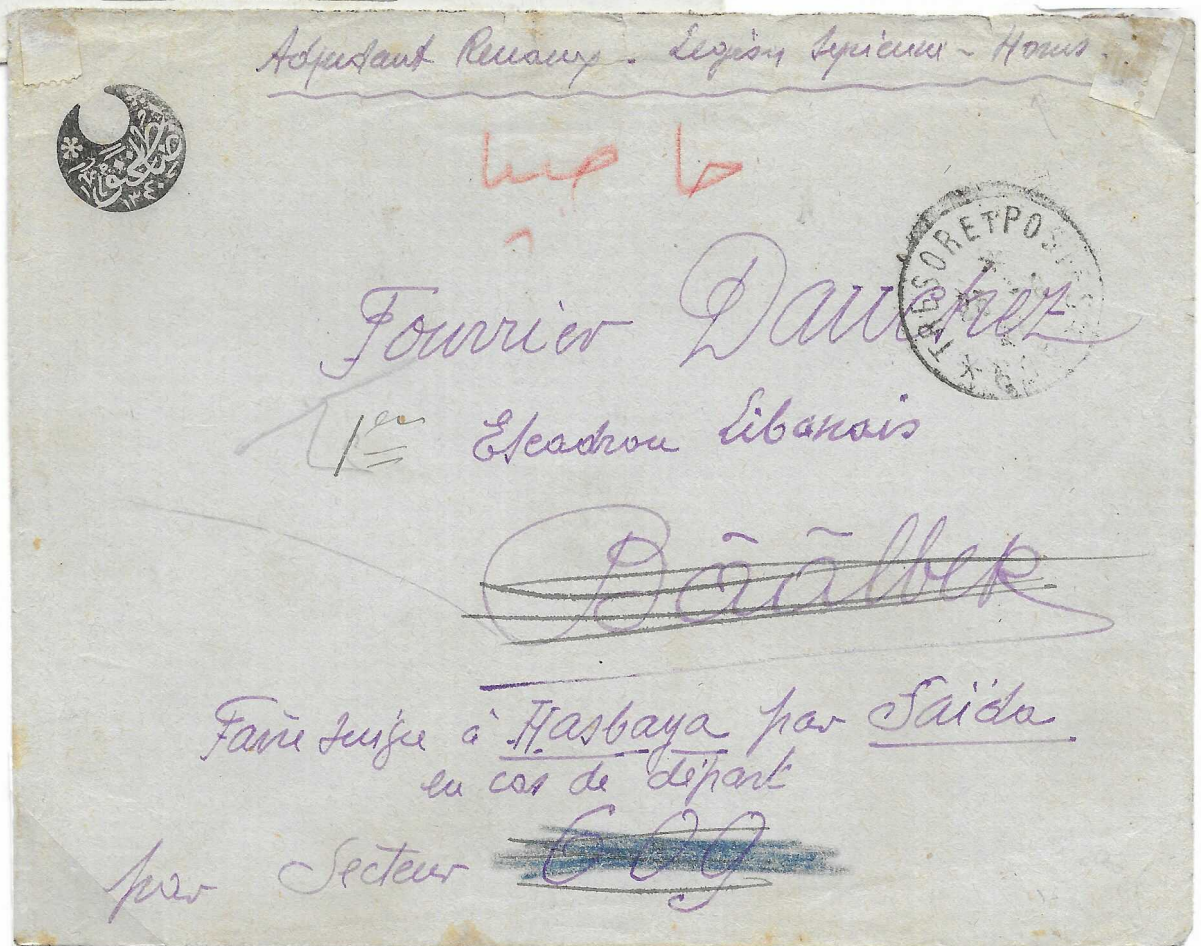 Adjudant Renaux - Légion Syrienne - Homs
حاصبيا
TRESOR ET POSTES
Fourrier Dauchez
1er Escadron Libanais
Bāālbek
Faire suivre à Hasbaya par Saïda
en cas de départ
par Secteur 609